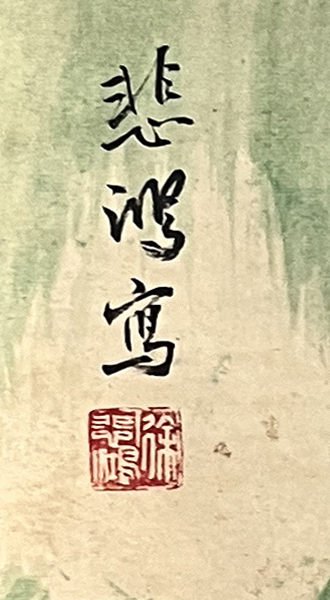 悲鴻寫
徐
鴻